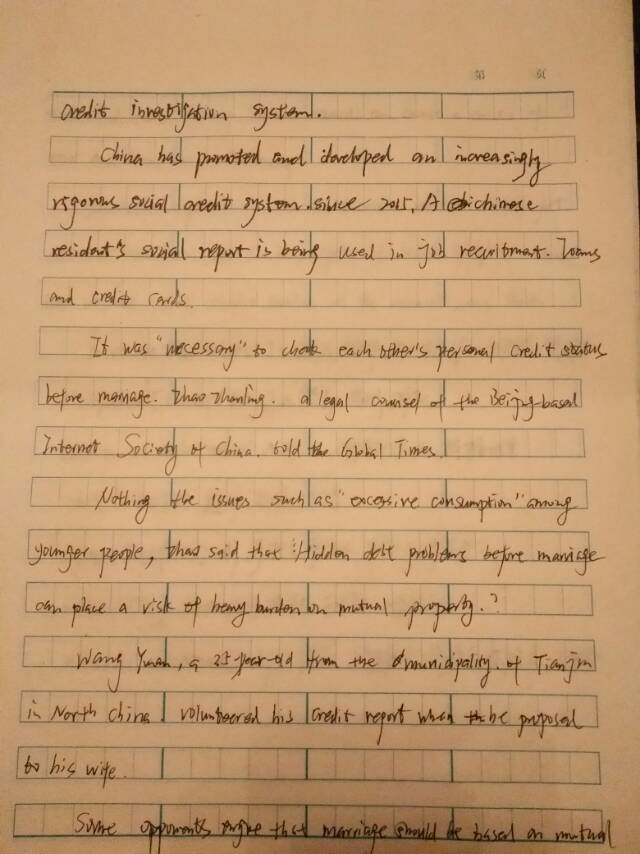 第 页
credit investigation system.
China has promoted and developed an increasingly
rigorous social credit system since 2015. A chinese
resident's social report is being used in job recruitment. Loans
and credit cards.
It was "necessary" to check each other's personal credit status
before marriage. Zhao Zhanling. a legal counsel of the Beijing-based
Internet Society of China. told the Global Times.
Nothing the issues such as "excessive consumption" among
younger people, Zhao said that "Hidden debt problems before marriage
can place a risk of heavy burden on mutual property."
Wang Yuan, a 25-year-old from the municipality of Tianjin
in North China volunteered his credit report when he proposed
to his wife.
Some opponents argue that marriage should be based on mutual